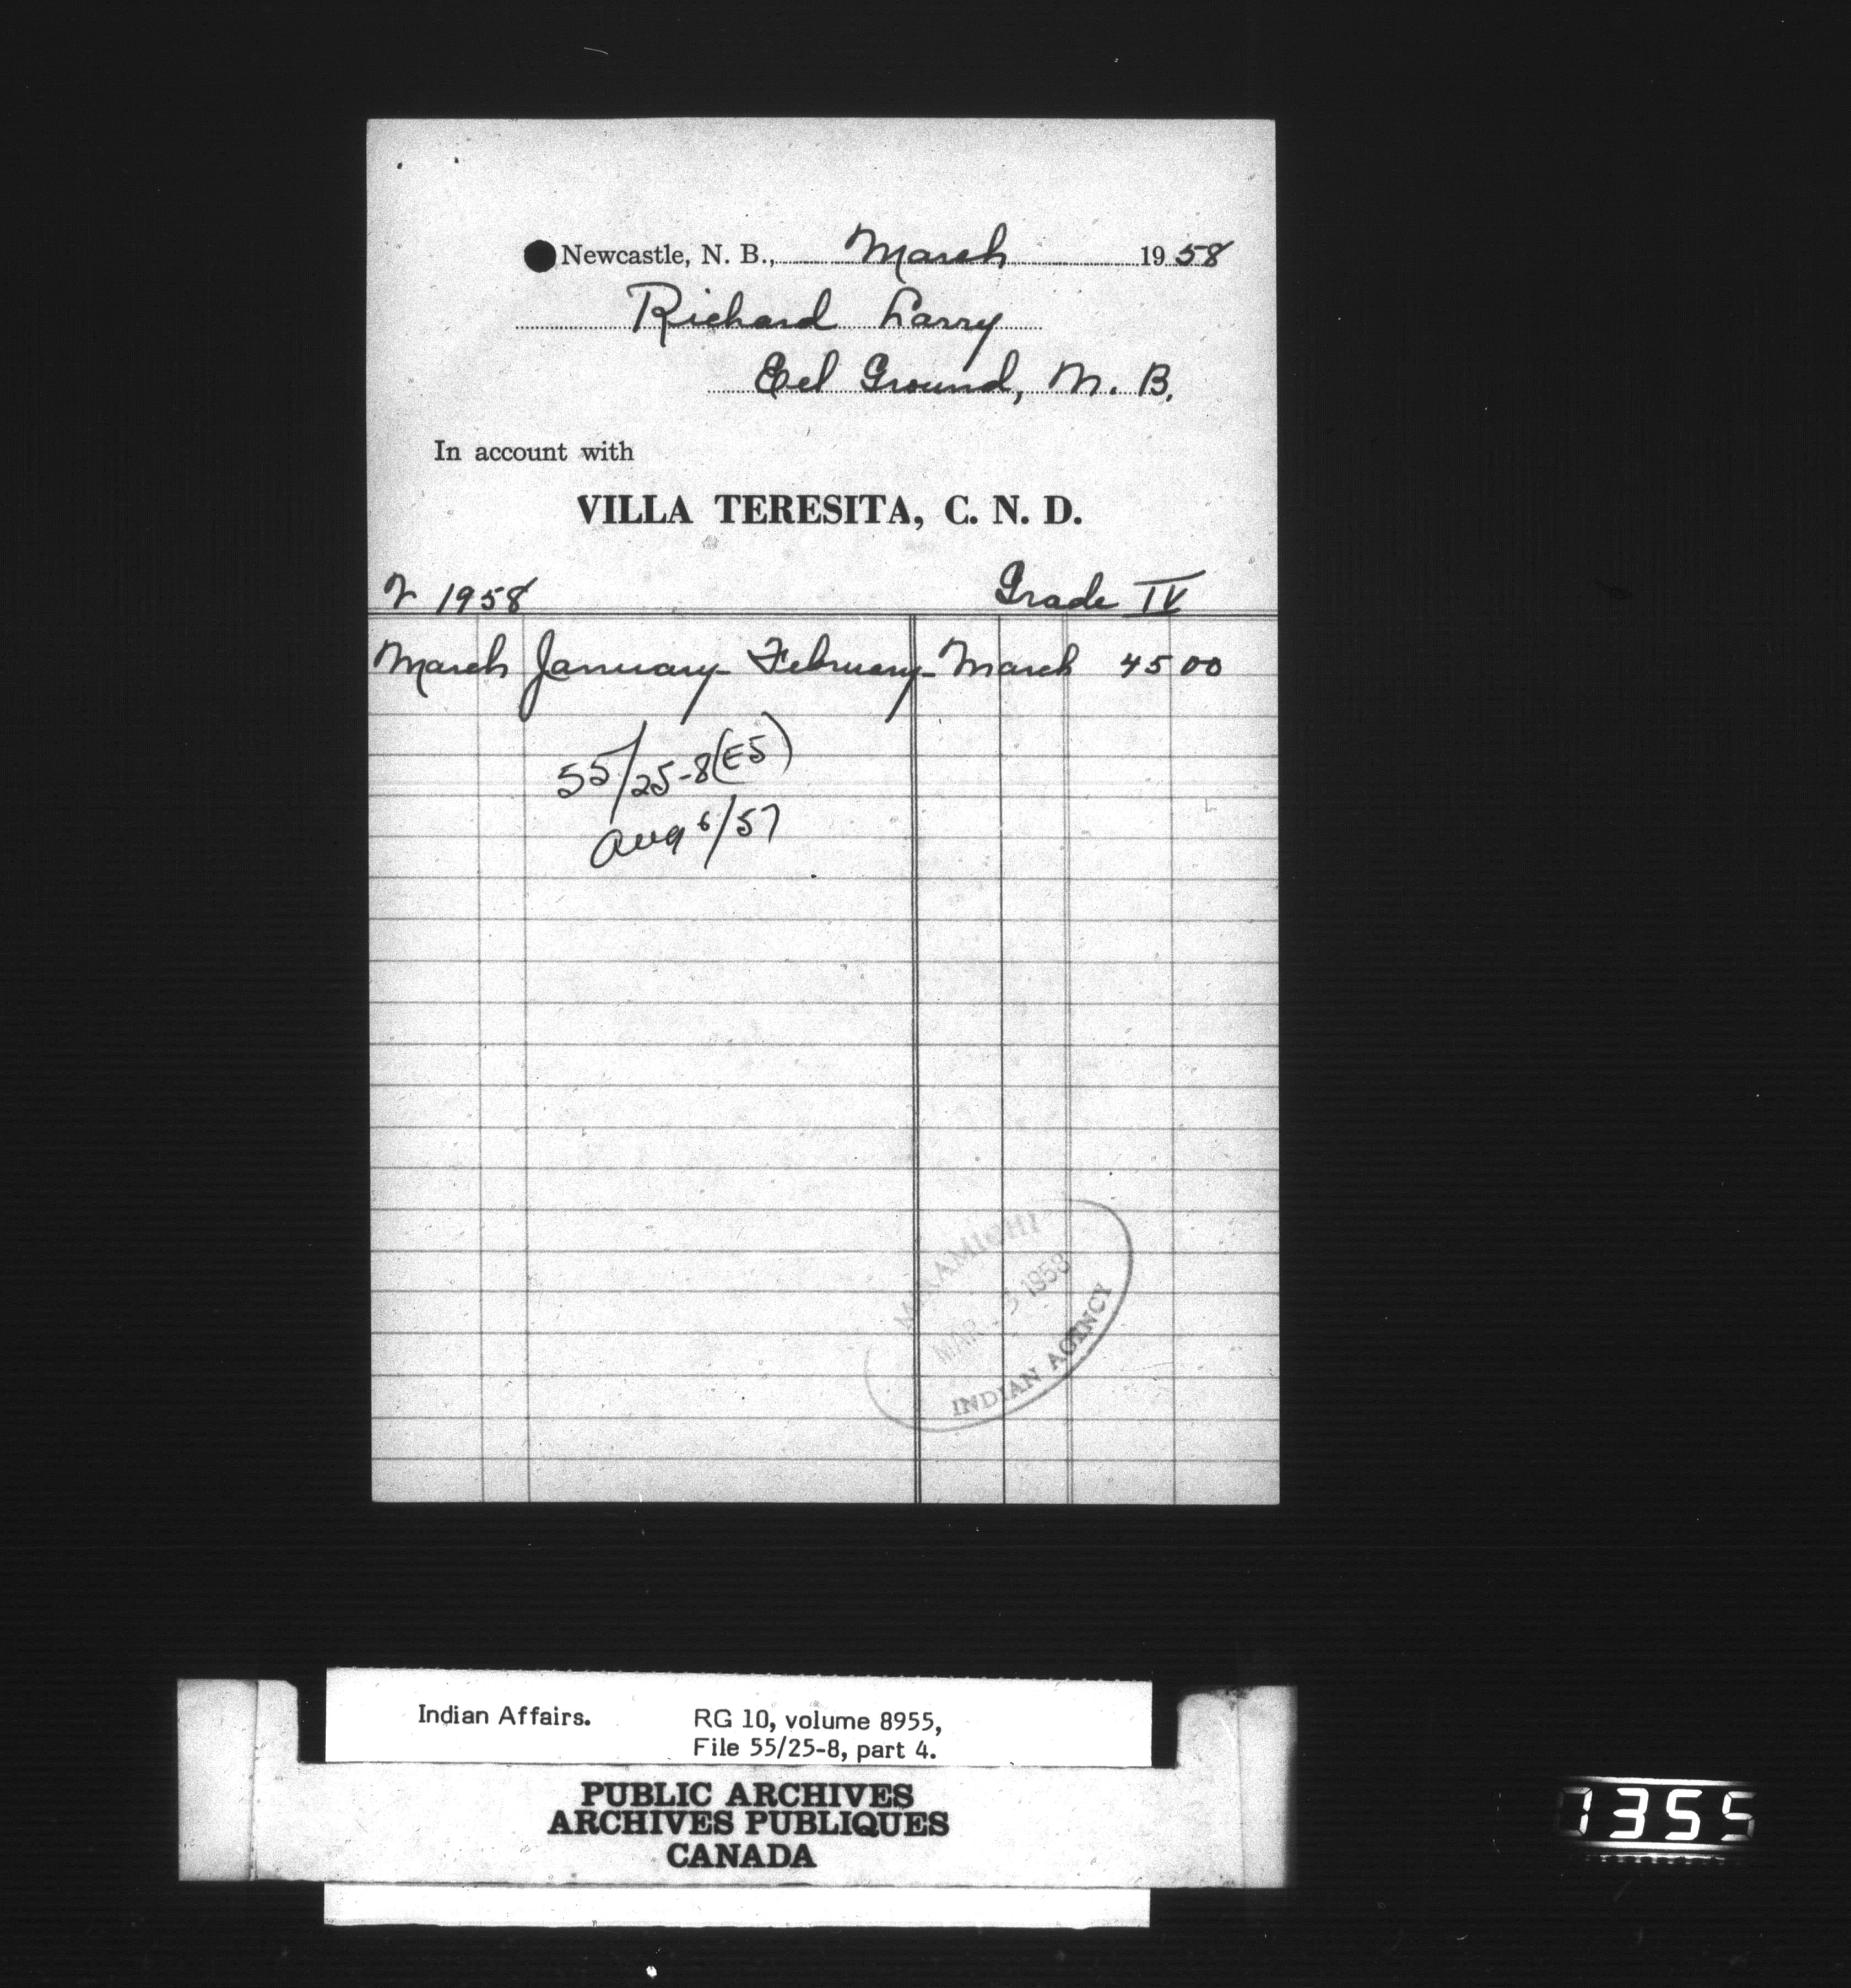 Newcastle, N. B., March 1958
Richard Larry
Eel Ground, N. B.
In account with
VILLA TERESITA, C. N. D.
1958 Grade IV
March January - February - March 45 00
55/25-8(E5)
Aug 6/57
MIRAMICHI
MAR - 3 1958
INDIAN AGENCY
Indian Affairs. RG 10, volume 8955,
File 55/25-8, part 4.
PUBLIC ARCHIVES
ARCHIVES PUBLIQUES
CANADA
1355